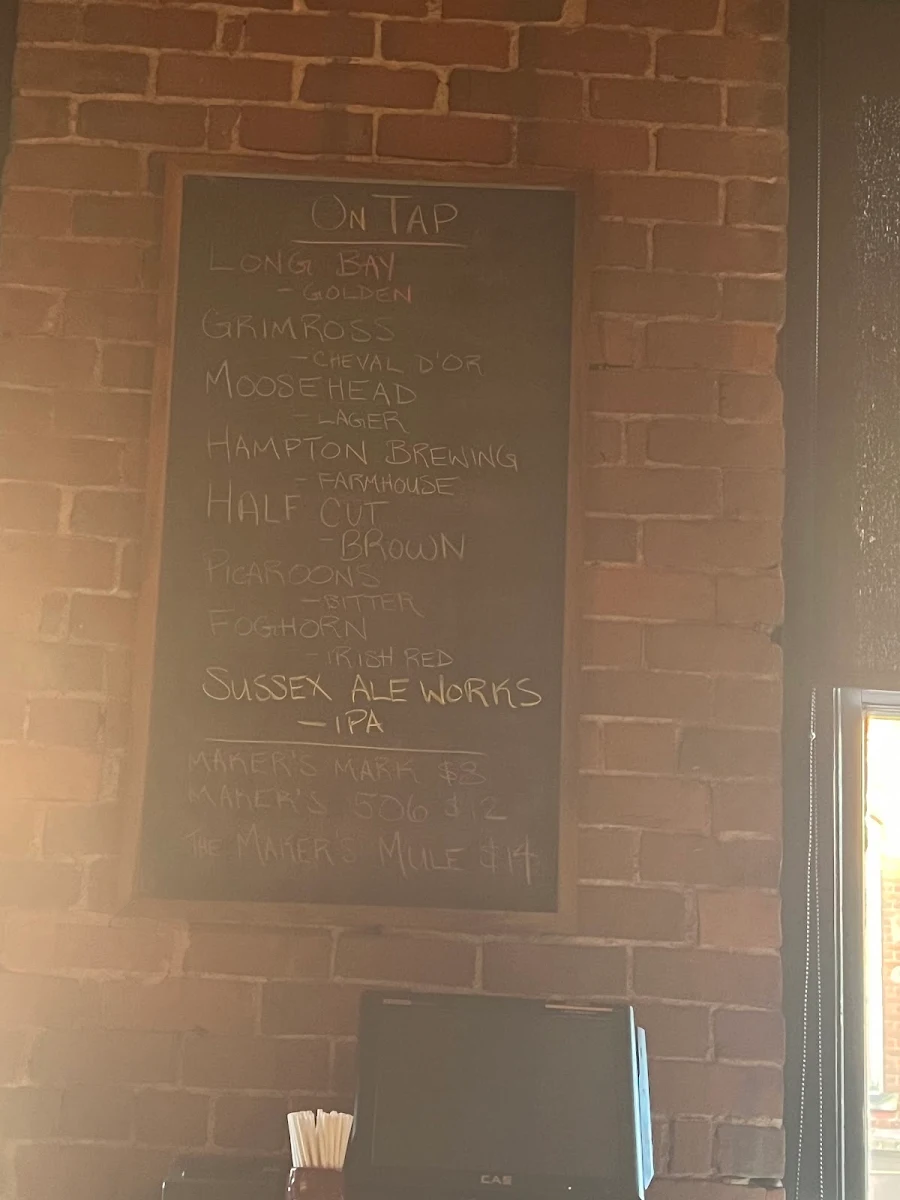 ON TAP
LONG BAY
- GOLDEN
GRIMROSS
- CHEVAL D'OR
MOOSEHEAD
- LAGER
HAMPTON BREWING
- FARMHOUSE
HALF CUT
- BROWN
PICAROONS
- BITTER
FOGHORN
- IRISH RED
SUSSEX ALE WORKS
- IPA
MAKER'S MARK $8
MAKER'S 506 $12
THE MAKER'S MULE $14
CAS